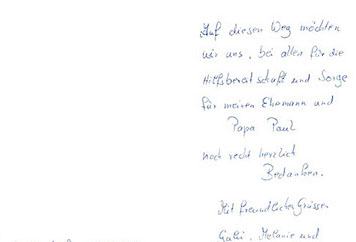 Auf diesen Weg möchten
wir uns, bei allen für die
Hilfsbereitschaft und Sorge
für meinen Ehemann und
Papa Paul
noch recht herzlich
Bedanken.
Mit freundlichen Grüssen
Melanie und